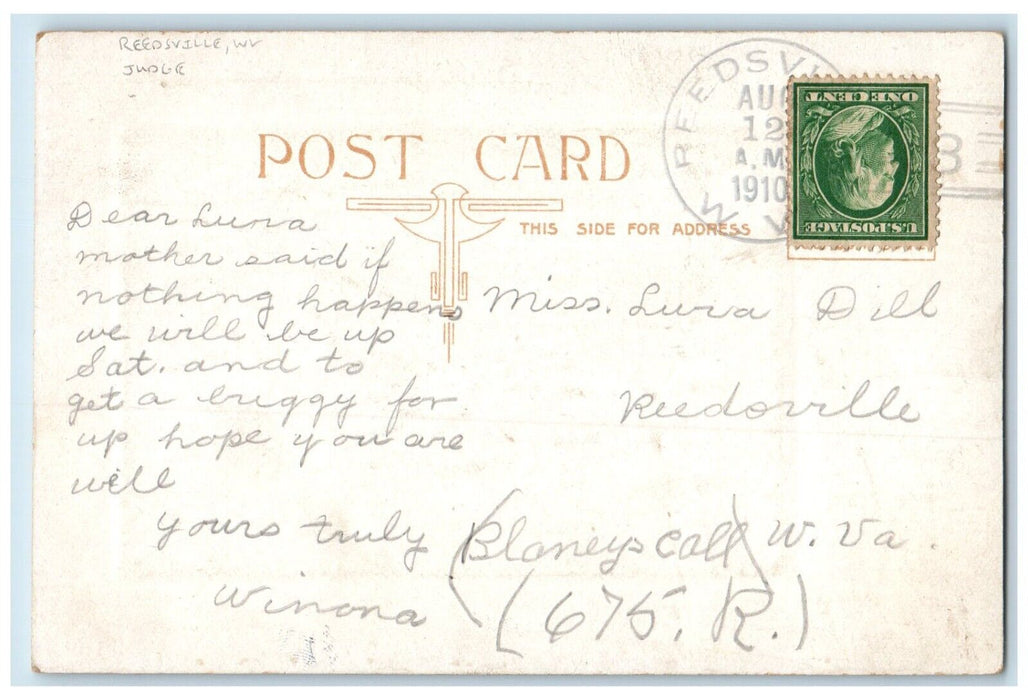 REEDSVILLE, WV
JUDGE
REEDSVI
W. V
AUG
12
A.M
1910
3
ONE CENT
U.S. POSTAGE
POST CARD
THIS SIDE FOR ADDRESS
Dear Lurva
mother said if
nothing happens
we will be up
Sat. and to
get a buggy for
up hope you are
will
yours truly
Winona
Miss. Lurva Dill
Reedsville
W. Va.
(Blaneys call)
(675. R.)